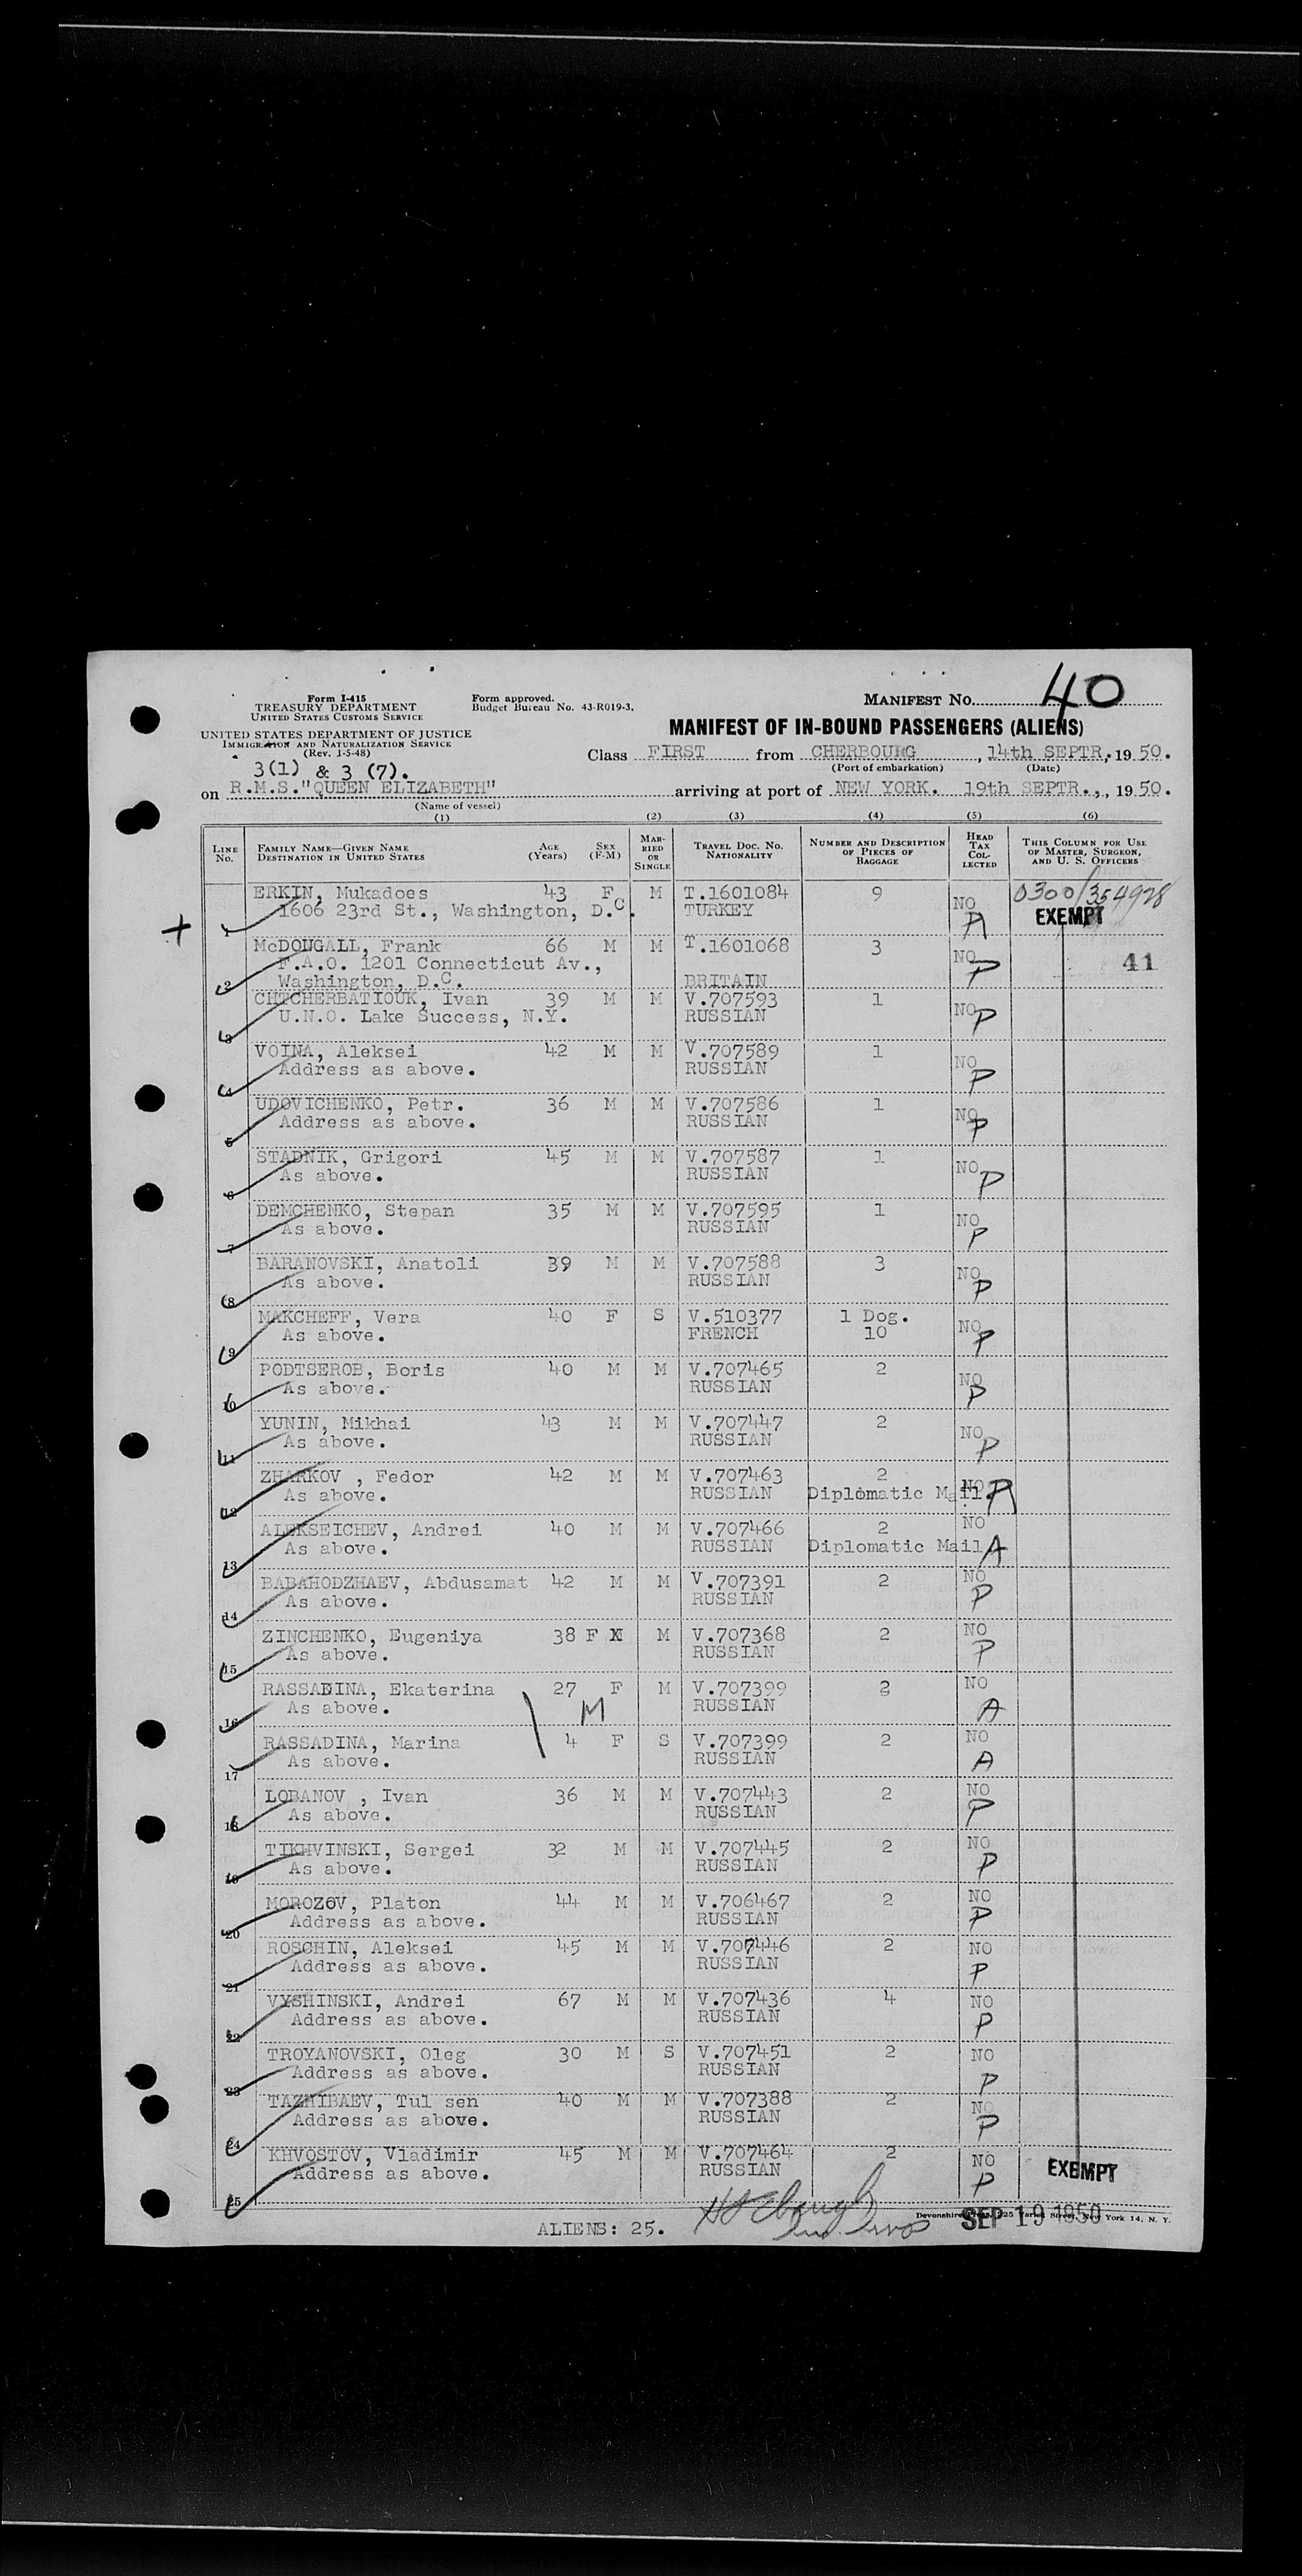 Form I-415
TREASURY DEPARTMENT
UNITED STATES CUSTOMS SERVICE
UNITED STATES DEPARTMENT OF JUSTICE
IMMIGRATION AND NATURALIZATION SERVICE
(Rev. 1-5-48)
Form approved.
Budget Bureau No. 43-R019-3.
MANIFEST No. 40
MANIFEST OF IN-BOUND PASSENGERS (ALIENS)
Class FIRST from CHERBOURG, 14th SEPTR, 1950.
(Port of embarkation) (Date)
3(1) & 3 (7).
on R.M.S."QUEEN ELIZABETH" arriving at port of NEW YORK. 19th SEPTR., 1950.
(Name of vessel)
(1) (2) (3) (4) (5) (6)
LINE No. FAMILY NAME—GIVEN NAME DESTINATION IN UNITED STATES AGE (Years) SEX (F-M) MARRIED OR SINGLE TRAVEL DOC. NO. NATIONALITY NUMBER AND DESCRIPTION OF PIECES OF BAGGAGE HEAD TAX COLLECTED THIS COLUMN FOR USE OF MASTER, SURGEON, AND U. S. OFFICERS
ERKIN, Mukadoes 43 F M T.1601084 9 NO 0300/354928
1 1606 23rd St., Washington, D.C. TURKEY A EXEMPT
McDOUGALL, Frank 66 M M T.1601068 3 NO 41
F.A.O. 1201 Connecticut Av., P
2 Washington, D.C. BRITAIN
CHTCHERBATIOUK, Ivan 39 M M V.707593 1 NO
3 U.N.O. Lake Success, N.Y. RUSSIAN P
VOINA, Aleksei 42 M M V.707589 1 NO
4 Address as above. RUSSIAN P
UDOVICHENKO, Petr. 36 M M V.707586 1 NO
5 Address as above. RUSSIAN P
STADNIK, Grigori 45 M M V.707587 1 NO
6 As above. RUSSIAN P
DEMCHENKO, Stepan 35 M M V.707595 1 NO
7 As above. RUSSIAN P
BARANOVSKI, Anatoli 39 M M V.707588 3 NO
8 As above. RUSSIAN P
MAKCHEFF, Vera 40 F S V.510377 1 Dog. NO
9 As above. FRENCH 10 P
PODTSEROB, Boris 40 M M V.707465 2 NO
10 As above. RUSSIAN P
YUNIN, Mikhai 43 M M V.707447 2 NO
11 As above. RUSSIAN P
ZHARKOV , Fedor 42 M M V.707463 2 NO
12 As above. RUSSIAN Diplomatic Mail. A
ALEKSEICHEV, Andrei 40 M M V.707466 2 NO
13 As above. RUSSIAN Diplomatic Mail A
BABAHODZHAEV, Abdusamat 42 M M V.707391 2 NO
14 As above. RUSSIAN P
ZINCHENKO, Eugeniya 38 F M V.707368 2 NO
15 As above. RUSSIAN P
RASSADINA, Ekaterina 27 F M V.707399 2 NO
16 As above. M RUSSIAN A
RASSADINA, Marina 4 F S V.707399 2 NO
17 As above. RUSSIAN A
LOBANOV , Ivan 36 M M V.707443 2 NO
18 As above. RUSSIAN P
TIKHVINSKI, Sergei 32 M M V.707445 2 NO
19 As above. RUSSIAN P
MOROZOV, Platon 44 M M V.706467 2 NO
20 Address as above. RUSSIAN P
ROSCHIN, Aleksei 45 M M V.707446 2 NO
21 Address as above. RUSSIAN P
VYSHINSKI, Andrei 67 M M V.707436 4 NO
22 Address as above. RUSSIAN P
TROYANOVSKI, Oleg 30 M S V.707451 2 NO
23 Address as above. RUSSIAN P
TAZHIBAEV, Tul sen 40 M M V.707388 2 NO
24 Address as above. RUSSIAN P
KHVOSTOV, Vladimir 45 M M V.707464 2 NO
25 Address as above. RUSSIAN P EXEMPT
ALIENS: 25. SEP 19 1950
New York 14, N. Y.